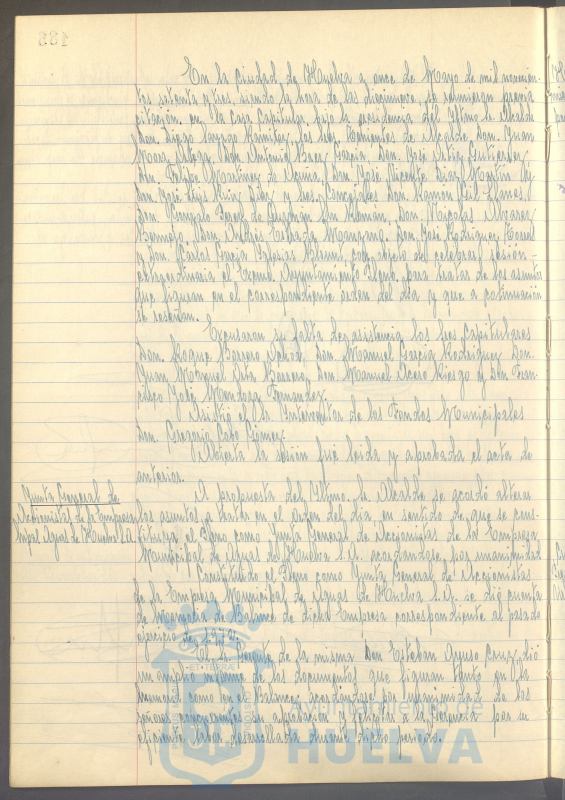 En la ciudad de Huelva a once de Mayo de mil novecien-
tos setenta y tres, siendo la hora de las diecinueve, se reunieron previa
citación, en la Casa Capitular, bajo la presidencia del Iltmo. Sr. Alcalde
Don Diego Ramírez, los Sres. Tenientes de Alcalde Don Juan
Mora Don Antonio Baez García, Don José Gutierrez
Don Felipe Martínez de Acuña, Don José Vicente Díaz Martín y
Don José Luis Ruiz Díaz y Sres. Concejales Don Ramón Gil
Don Perez de Guzmán San Román, Don Nicolás Alvarez
Don Andrés Estrada Manzano, Don José Rodríguez
y Don Carlos García Iglesias con objeto de celebrar sesión
extraordinaria el Excmo. Ayuntamiento Pleno, para tratar de los asuntos
que figuran en el correspondiente orden del día y que a continuación
se reseñan.
Excusaron su falta de asistencia los Sres. Capitulares
Don Roque Borrero Don Manuel García Rodríguez, Don
Juan Manuel Borrero, Don Manuel Acero Riesgo y Don Fran-
cisco José Mendoza Fernandez.
Asistió el Sr. Interventor de los Fondos Municipales
Don Gregorio Cobo Gómez.
Abierta la sesión fué leida y aprobada el acta de
anterior.
Junta General de
Accionistas de la Empresa
Mpal Aguas de Huelva S.A.
A propuesta del Iltmo. Sr. Alcalde se acordó alterar
los asuntos a tratar en el orden del día, en sentido de que se cons-
tituya el Pleno como Junta General de Accionistas de la Empresa
Municipal de Aguas de Huelva S.A. acordándose por unanimidad
Constituido el Pleno como Junta General de Accionistas
de la Empresa Municipal de Aguas de Huelva S.A. se dió cuenta
de Memoria de Balance de dicha Empresa correspondiente al pasado
ejercicio de 1972.
El Sr. Gerente de la misma Don Esteban Ayuso Cruz, dió
un amplio informe de los documentos que figuran tanto en la
Memoria como en el Balance, acordándose por unanimidad de los
señores concurrentes su aprobación y felicitar a la Gerencia por su
eficiente labor desarrollada durante dicho período.
Ayuntamiento de
HUELVA